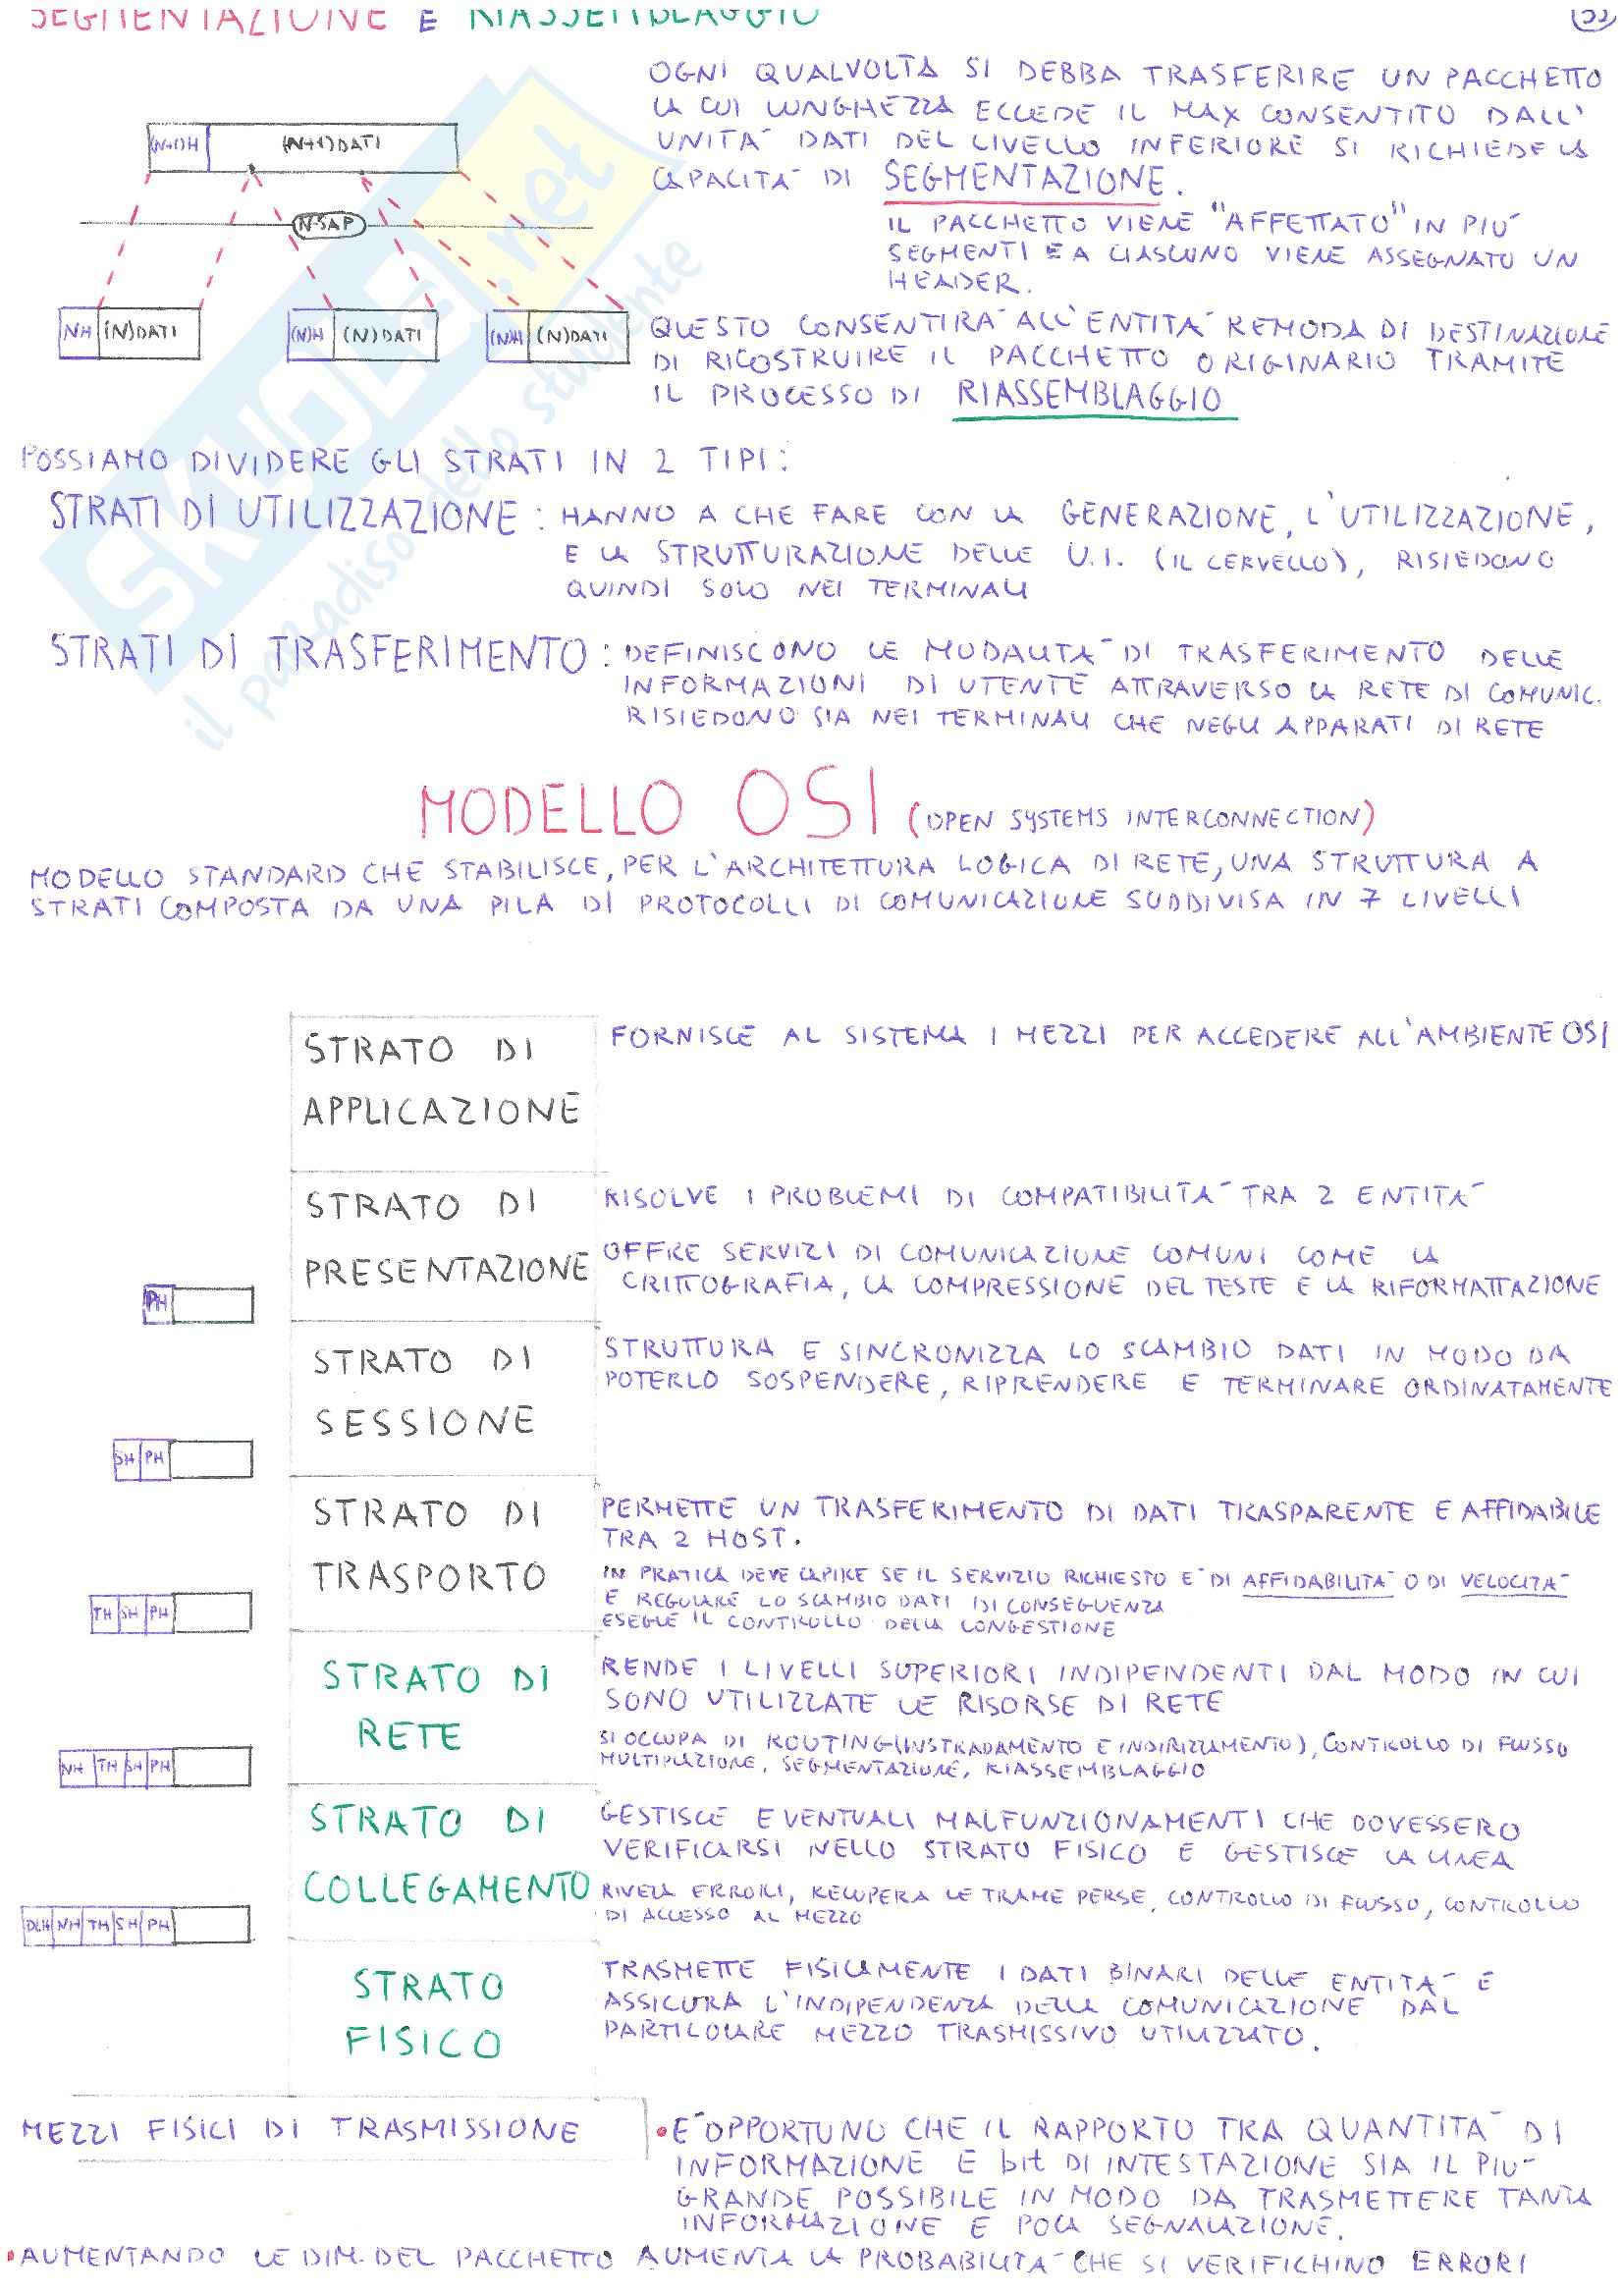 SEGMENTAZIONE E RIASSEMBLAGGIO
OGNI QUALVOLTA SI DEBBA TRASFERIRE UN PACCHETTO
LA CUI LUNGHEZZA ECCEDE IL MAX CONSENTITO DALL'
UNITA' DATI DEL LIVELLO INFERIORE SI RICHIEDE LA
CAPACITA' DI SEGMENTAZIONE.
IL PACCHETTO VIENE "AFFETTATO" IN PIU'
SEGMENTI E A CIASCUNO VIENE ASSEGNATO UN
HEADER.
(N+1)H (N+1)DATI
N-SAP
NH (N)DATI (N)H (N)DATI (N)H (N)DATI
QUESTO CONSENTIRA' ALL'ENTITA' REMODA DI DESTINAZIONE
DI RICOSTRUIRE IL PACCHETTO ORIGINARIO TRAMITE
IL PROCESSO DI RIASSEMBLAGGIO
POSSIAMO DIVIDERE GLI STRATI IN 2 TIPI:
STRATI DI UTILIZZAZIONE: HANNO A CHE FARE CON LA GENERAZIONE, L'UTILIZZAZIONE,
E LA STRUTTURAZIONE DELLE U.I. (IL CERVELLO), RISIEDONO
QUINDI SOLO NEI TERMINALI
STRATI DI TRASFERIMENTO: DEFINISCONO LE MODALITA' DI TRASFERIMENTO DELLE
INFORMAZIONI DI UTENTE ATTRAVERSO LA RETE DI COMUNIC.
RISIEDONO SIA NEI TERMINALI CHE NEGLI APPARATI DI RETE
SKUOLA.net
il paradiso dello studente
MODELLO OSI (OPEN SYSTEMS INTERCONNECTION)
MODELLO STANDARD CHE STABILISCE, PER L'ARCHITETTURA LOGICA DI RETE, UNA STRUTTURA A
STRATI COMPOSTA DA UNA PILA DI PROTOCOLLI DI COMUNICAZIONE SUDDIVISA IN 7 LIVELLI
STRATO DI
APPLICAZIONE
FORNISCE AL SISTEMA I MEZZI PER ACCEDERE ALL'AMBIENTE OSI
STRATO DI
PRESENTAZIONE
RISOLVE I PROBLEMI DI COMPATIBILITA' TRA 2 ENTITA'
OFFRE SERVIZI DI COMUNICAZIONE COMUNI COME LA
CRITTOGRAFIA, LA COMPRESSIONE DEL TESTE E LA RIFORMATTAZIONE
PH
STRATO DI
SESSIONE
STRUTTURA E SINCRONIZZA LO SCAMBIO DATI IN MODO DA
POTERLO SOSPENDERE, RIPRENDERE E TERMINARE ORDINATAMENTE
SH PH
STRATO DI
TRASPORTO
PERMETTE UN TRASFERIMENTO DI DATI TRASPARENTE E AFFIDABILE
TRA 2 HOST.
IN PRATICA DEVE CAPIRE SE IL SERVIZIO RICHIESTO E' DI AFFIDABILITA' O DI VELOCITA'
E REGOLARE LO SCAMBIO DATI DI CONSEGUENZA
ESEGUE IL CONTROLLO DELLA CONGESTIONE
TH SH PH
STRATO DI
RETE
RENDE I LIVELLI SUPERIORI INDIPENDENTI DAL MODO IN CUI
SONO UTILIZZATE LE RISORSE DI RETE
SI OCCUPA DI ROUTING (INSTRADAMENTO E INDIRIZZAMENTO), CONTROLLO DI FLUSSO
MULTIPLAZIONE, SEGMENTAZIONE, RIASSEMBLAGGIO
NH TH SH PH
STRATO DI
COLLEGAMENTO
GESTISCE EVENTUALI MALFUNZIONAMENTI CHE DOVESSERO
VERIFICARSI NELLO STRATO FISICO E GESTISCE LA LINEA
RIVELA ERRORI, RECUPERA LE TRAME PERSE, CONTROLLO DI FLUSSO, CONTROLLO
DI ACCESSO AL MEZZO
DLH NH TH SH PH
STRATO
FISICO
TRASMETTE FISICAMENTE I DATI BINARI DELLE ENTITA' E
ASSICURA L'INDIPENDENZA DELLA COMUNICAZIONE DAL
PARTICOLARE MEZZO TRASMISSIVO UTILIZZATO.
MEZZI FISICI DI TRASMISSIONE
• E' OPPORTUNO CHE IL RAPPORTO TRA QUANTITA' DI
INFORMAZIONE E bit DI INTESTAZIONE SIA IL PIU'
GRANDE POSSIBILE IN MODO DA TRASMETTERE TANTA
INFORMAZIONE E POCA SEGNALAZIONE.
• AUMENTANDO LE DIM. DEL PACCHETTO AUMENTA LA PROBABILITA' CHE SI VERIFICHINO ERRORI